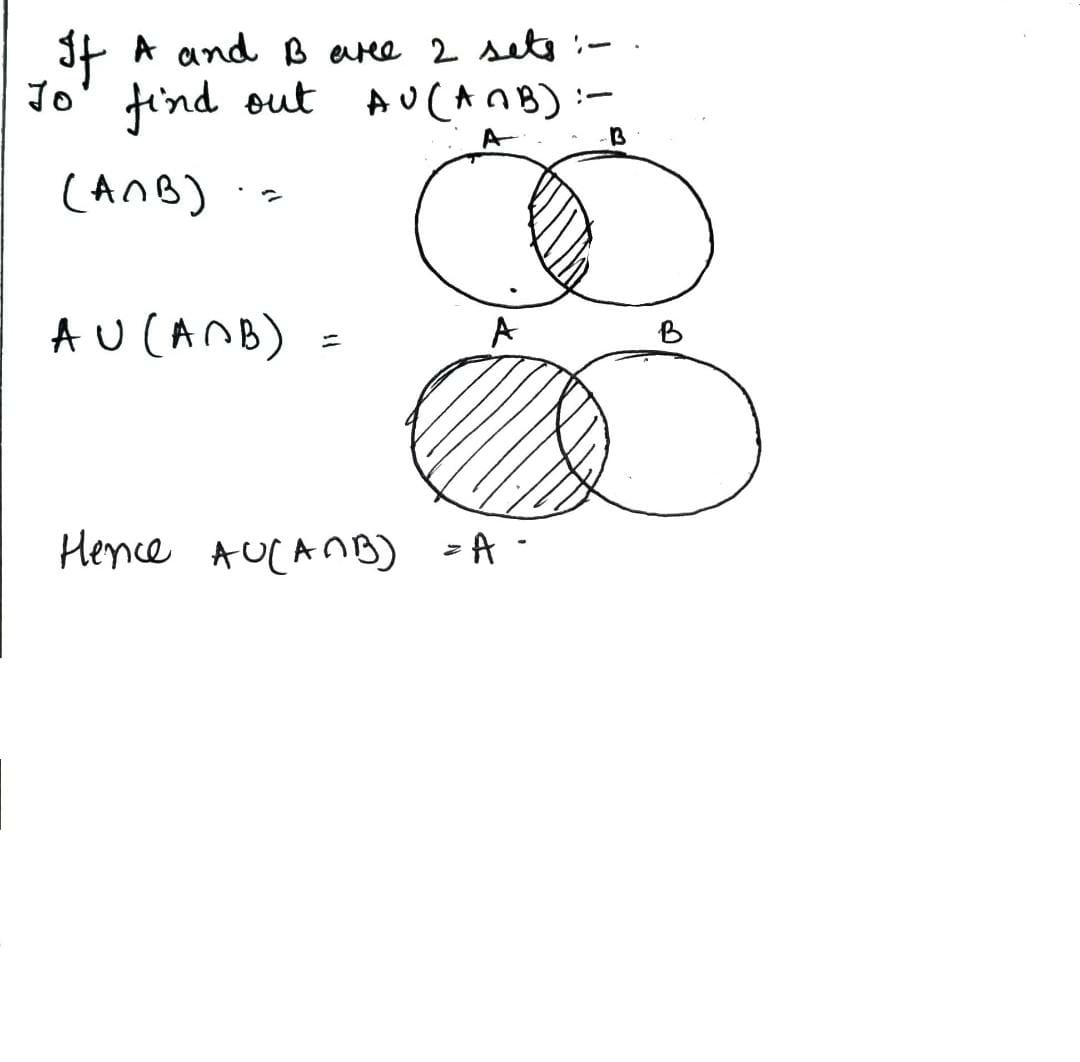 If A and B are 2 sets :-
To find out A∪(A∩B) :-
A B
(A∩B) =
A∪(A∩B) = A B
Hence A∪(A∩B) = A.